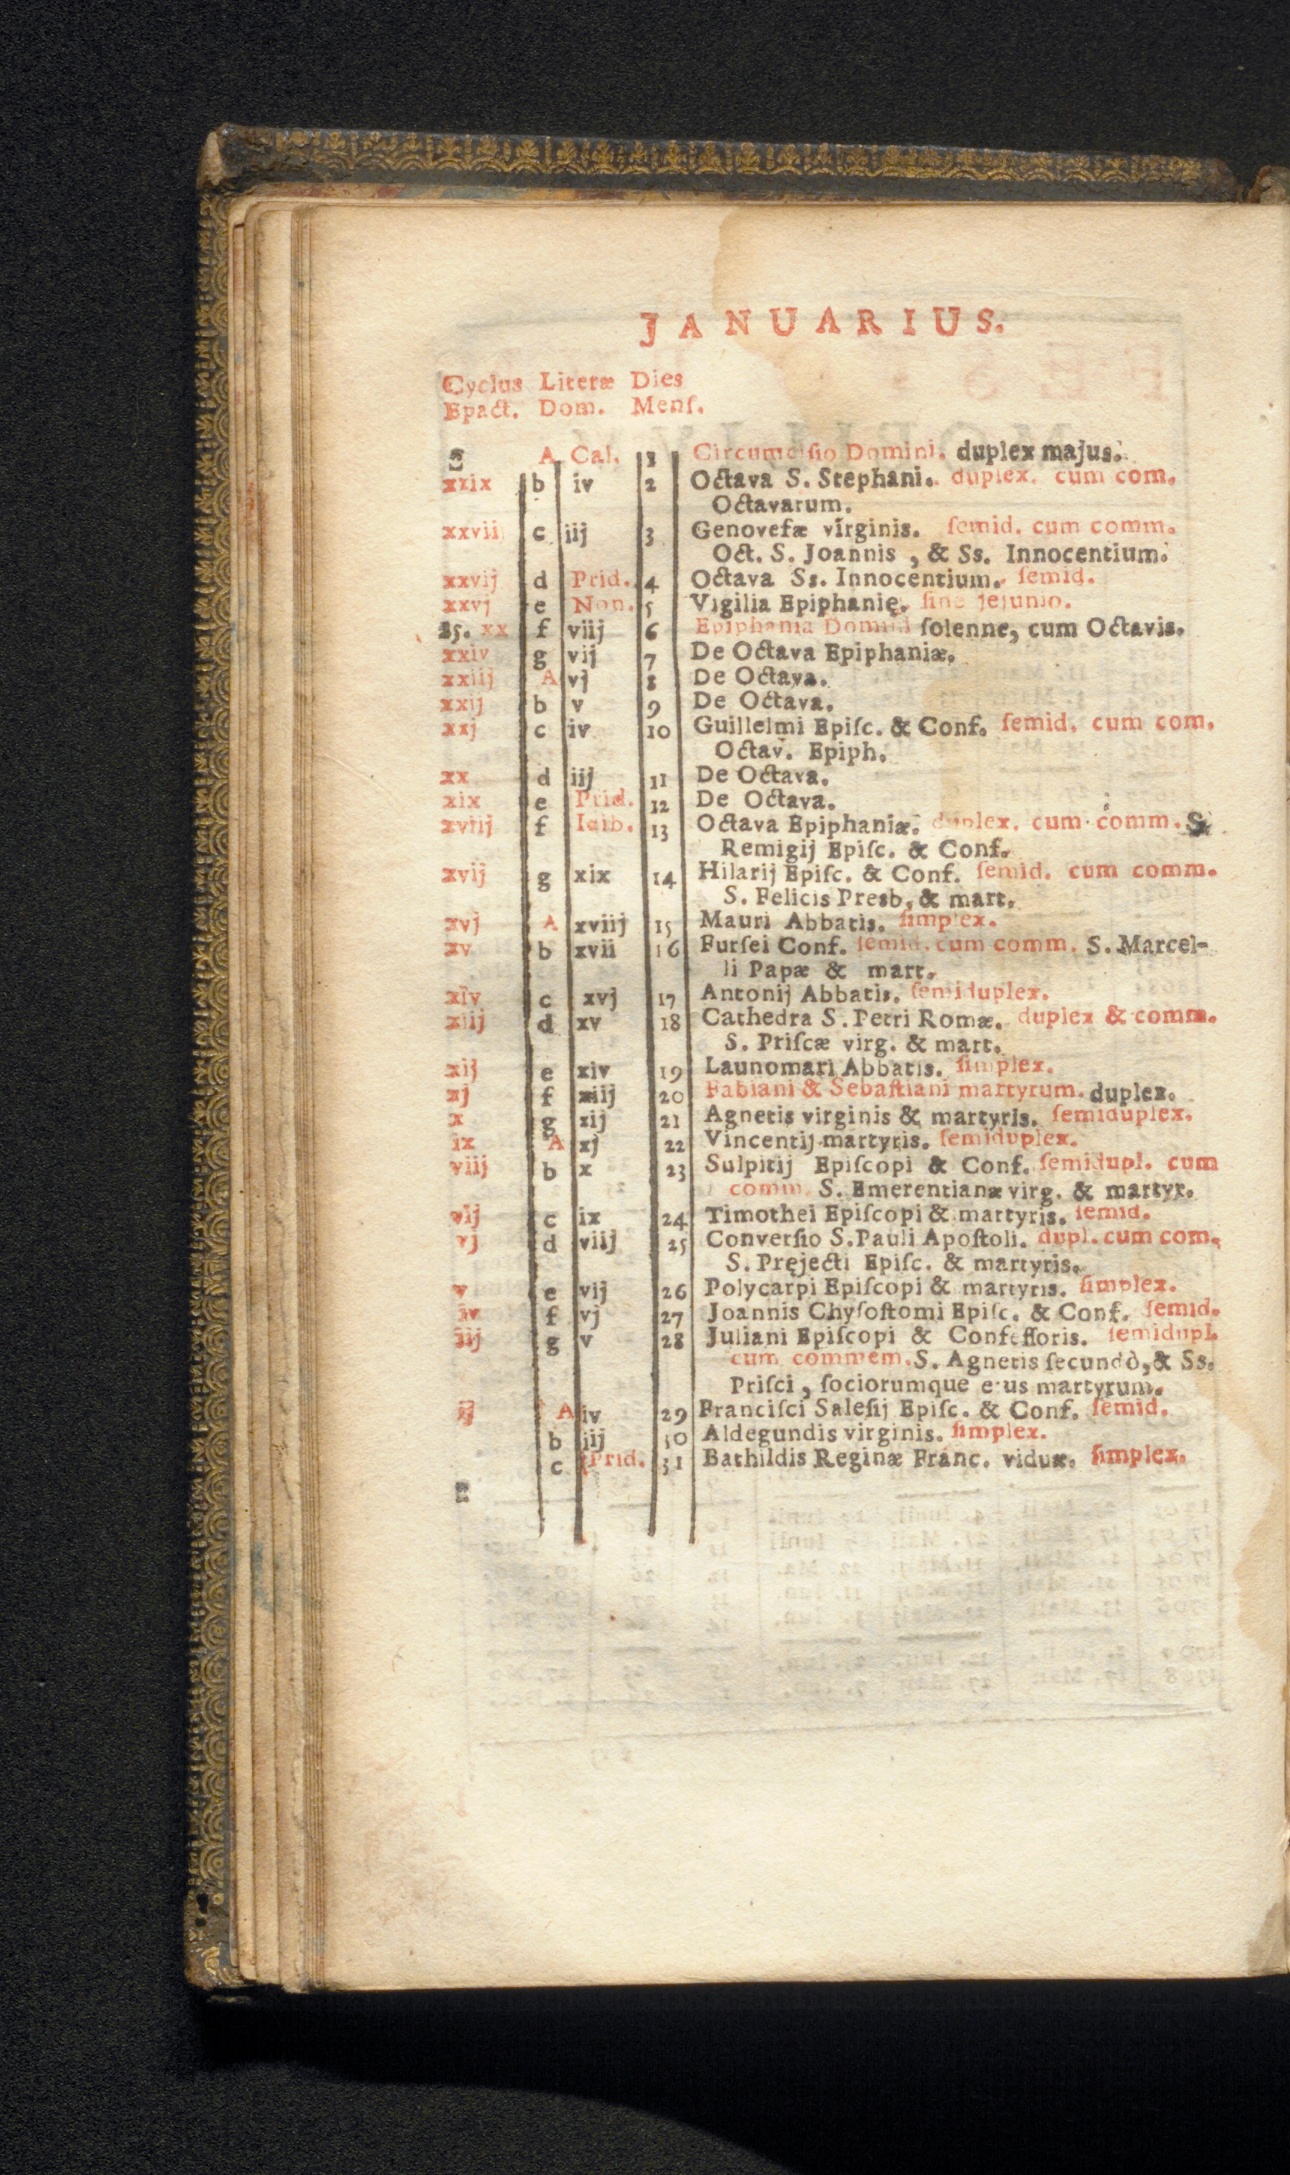 JANUARIUS.
Cyclus Literæ Dies
Epact. Dom. Menſ.
A Cal. 1 Circumciſio Domini. duplex majus.
xxix b iv 2 Octava S. Stephani. duplex. cum com.
Octavarum.
xxviii c iij 3 Genovefæ virginis. ſemid. cum comm.
Oct. S. Joannis, & Ss. Innocentium.
xxvij d Prid. 4 Octava Ss. Innocentium. ſemid.
xxvj e Non. 5 Vigilia Epiphanię. ſine jejunio.
25. xx f viij 6 Epiphania Domini ſolenne, cum Octavis.
xxiv g vij 7 De Octava Epiphaniæ.
xxiij A vj 8 De Octava.
xxij b v 9 De Octava.
xxj c iv 10 Guillelmi Epiſc. & Conf. ſemid. cum com.
Octav. Epiph.
xx d iij 11 De Octava.
xix e Prid. 12 De Octava.
xviij f Idib. 13 Octava Epiphaniæ. duplex. cum comm. S.
Remigij Epiſc. & Conf.
xvij g xix 14 Hilarij Epiſc. & Conf. ſemid. cum comm.
S. Felicis Presb, & mart.
xvj A xviij 15 Mauri Abbatis. ſimplex.
xv b xvii 16 Furſei Conf. ſemid. cum comm. S. Marcel-
li Papæ & mart.
xiv c xvj 17 Antonij Abbatis. ſemiduplex.
xiij d xv 18 Cathedra S. Petri Romæ. duplex & comm.
S. Priſcæ virg. & mart.
xij e xiv 19 Launomari Abbatis. ſimplex.
xj f xiij 20 Fabiani & Sebaſtiani martyrum. duplex.
x g xij 21 Agnetis virginis & martyris. ſemiduplex.
ix A xj 22 Vincentij martyris. ſemiduplex.
viij b x 23 Sulpitij Epiſcopi & Conf. ſemidupl. cum
comm. S. Emerentianæ virg. & martyr.
vij c ix 24 Timothei Epiſcopi & martyris. ſemid.
vj d viij 25 Converſio S. Pauli Apoſtoli. dupl. cum com.
S. Pręjecti Epiſc. & martyris.
v e vij 26 Polycarpi Epiſcopi & martyris. ſimplex.
iv f vj 27 Joannis Chyſoſtomi Epiſc. & Conf. ſemid.
iij g v 28 Juliani Epiſcopi & Confeſſoris. ſemidupl.
cum commem. S. Agnetis ſecundò, & Ss.
Priſci, ſociorumque ejus martyrum.
ij A iv 29 Franciſci Saleſij Epiſc. & Conf. ſemid.
b iij 30 Aldegundis virginis. ſimplex.
c Prid. 31 Bathildis Reginæ Franc. viduæ. ſimplex.